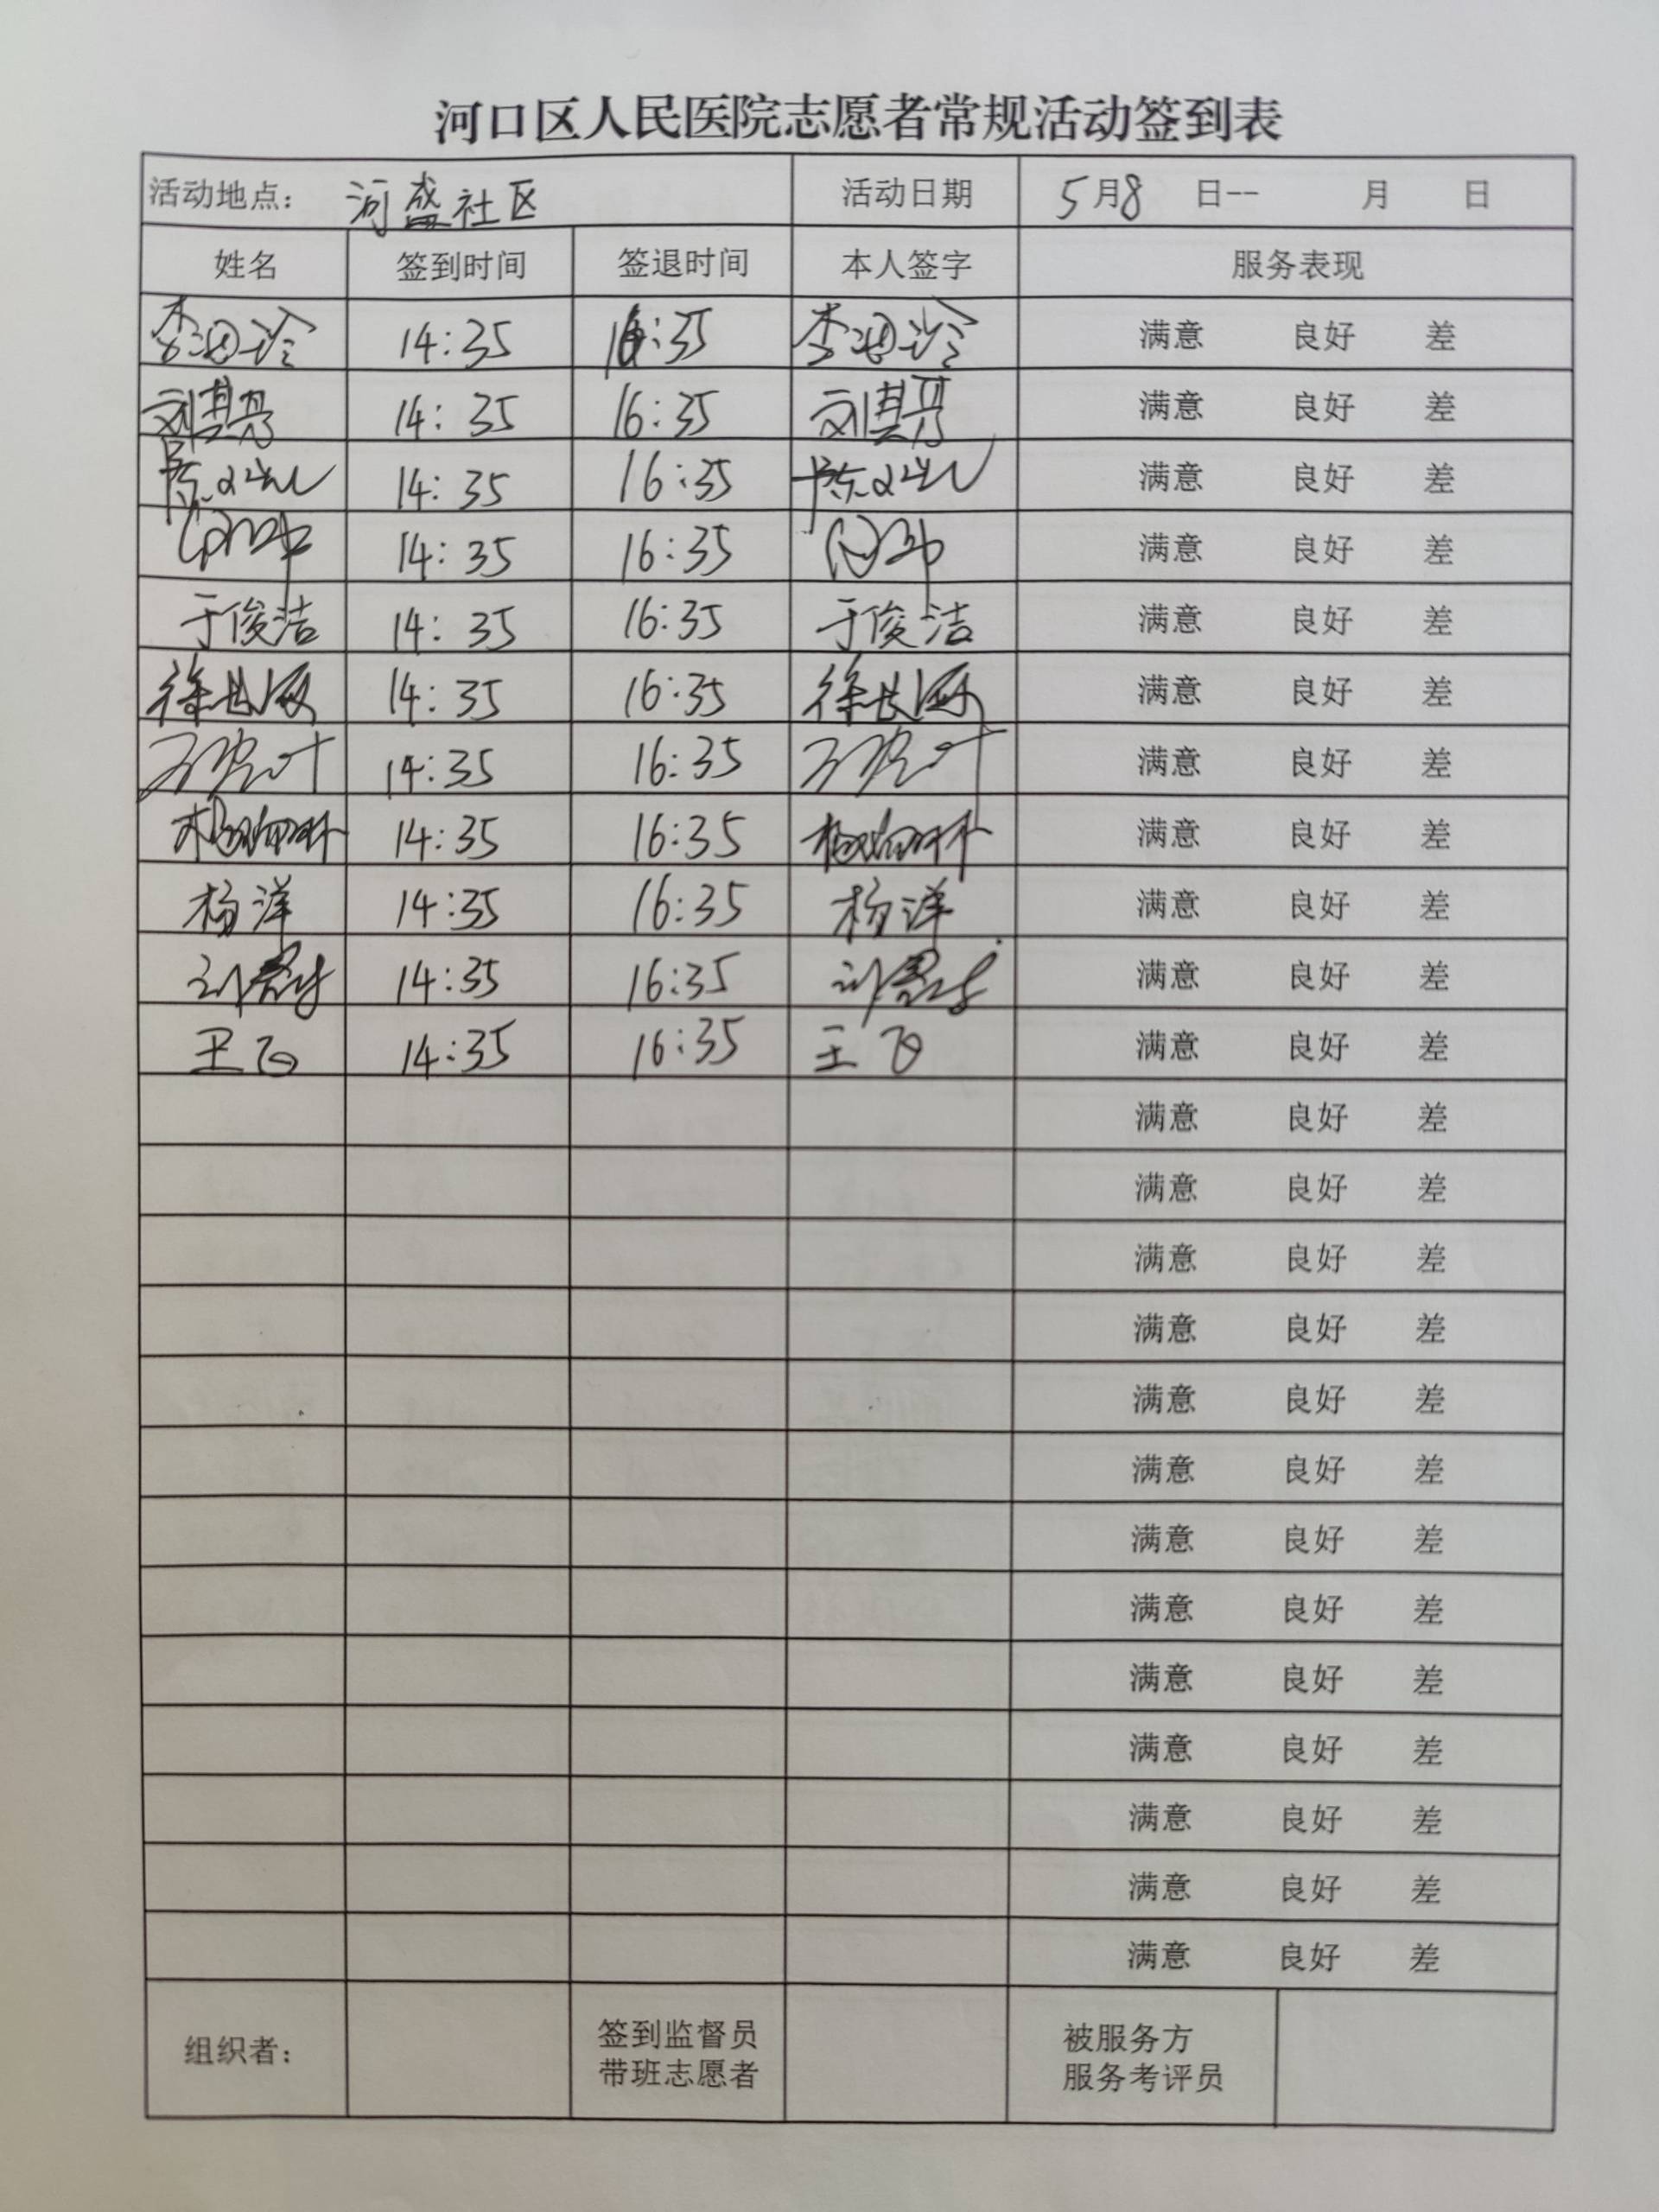 河口区人民医院志愿者常规活动签到表
活动地点： 河盛社区 活动日期 5月8 日-- 月 日
姓名 签到时间 签退时间 本人签字 服务表现
14:35 16:35 满意 良好 差
刘其丹 14:35 16:35 刘其丹 满意 良好 差
14:35 16:35 满意 良好 差
14:35 16:35 满意 良好 差
于俊洁 14:35 16:35 于俊洁 满意 良好 差
14:35 16:35 满意 良好 差
14:35 16:35 满意 良好 差
14:35 16:35 满意 良好 差
杨洋 14:35 16:35 杨洋 满意 良好 差
14:35 16:35 满意 良好 差
王飞 14:35 16:35 王飞 满意 良好 差
满意 良好 差
满意 良好 差
满意 良好 差
满意 良好 差
满意 良好 差
满意 良好 差
满意 良好 差
满意 良好 差
满意 良好 差
满意 良好 差
满意 良好 差
满意 良好 差
满意 良好 差
组织者： 签到监督员 被服务方
带班志愿者 服务考评员